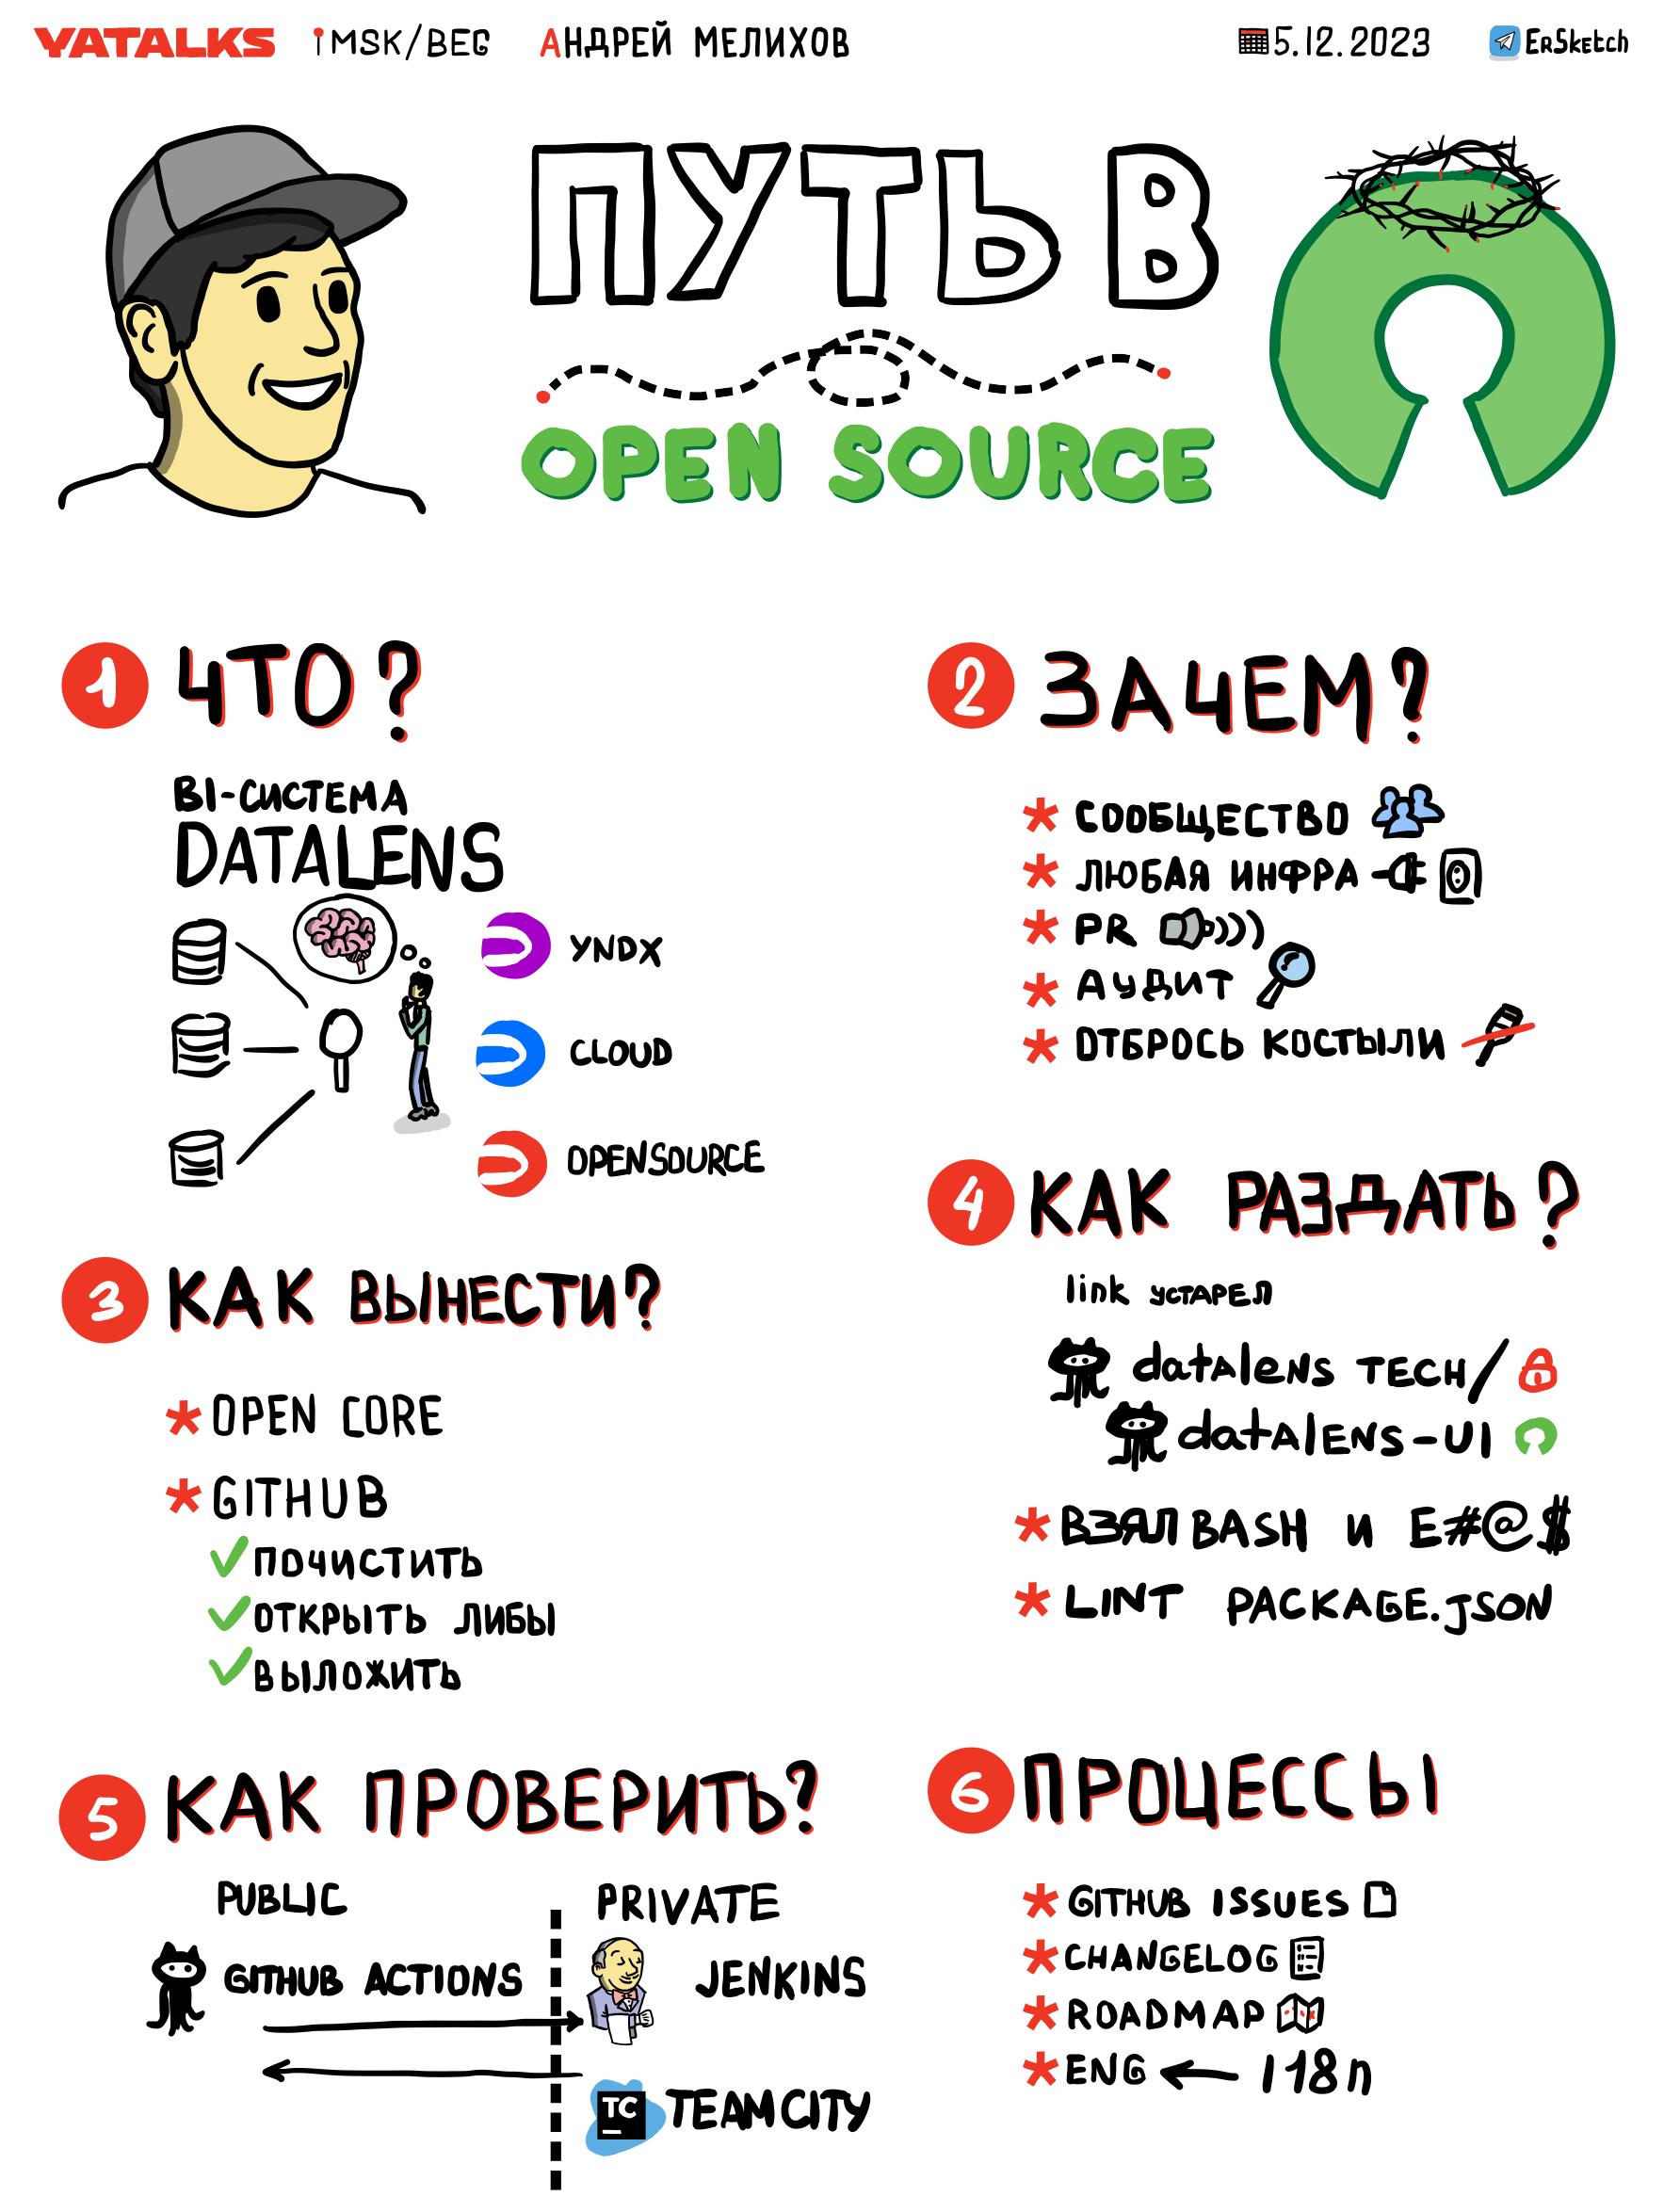 YATALKS MSK/BEG АНДРЕЙ МЕЛИХОВ 5.12.2023 ErSketch
ПУТЬ В
OPEN SOURCE
1 ЧТО?
BI-СИСТЕМА
DATALENS
YNDX
CLOUD
OPENSOURCE
2 ЗАЧЕМ?
* СООБЩЕСТВО
* ЛЮБАЯ ИНФРА
* PR
* АУДИТ
* ОТБРОСЬ КОСТЫЛИ
3 КАК ВЫНЕСТИ?
* OPEN CORE
* GITHUB
✓ ПОЧИСТИТЬ
✓ ОТКРЫТЬ ЛИБЫ
✓ ВЫЛОЖИТЬ
4 КАК РАЗДАТЬ?
link УСТАРЕЛ
datalens TECH/
datalens-UI
* ВЗЯЛ BASH И Е#@$
* LINT PACKAGE.JSON
5 КАК ПРОВЕРИТЬ?
PUBLIC PRIVATE
GITHUB ACTIONS JENKINS
TC TEAMCITY
6 ПРОЦЕССЫ
* GITHUB ISSUES
* CHANGELOG
* ROADMAP
* ENG ← I18n